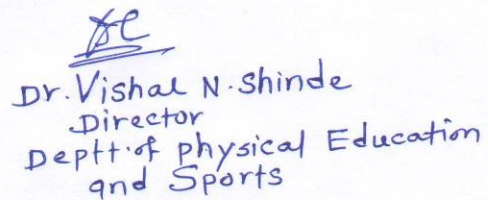 Dr. Vishal N. Shinde
Director
Deptt. of physical Education
and Sports